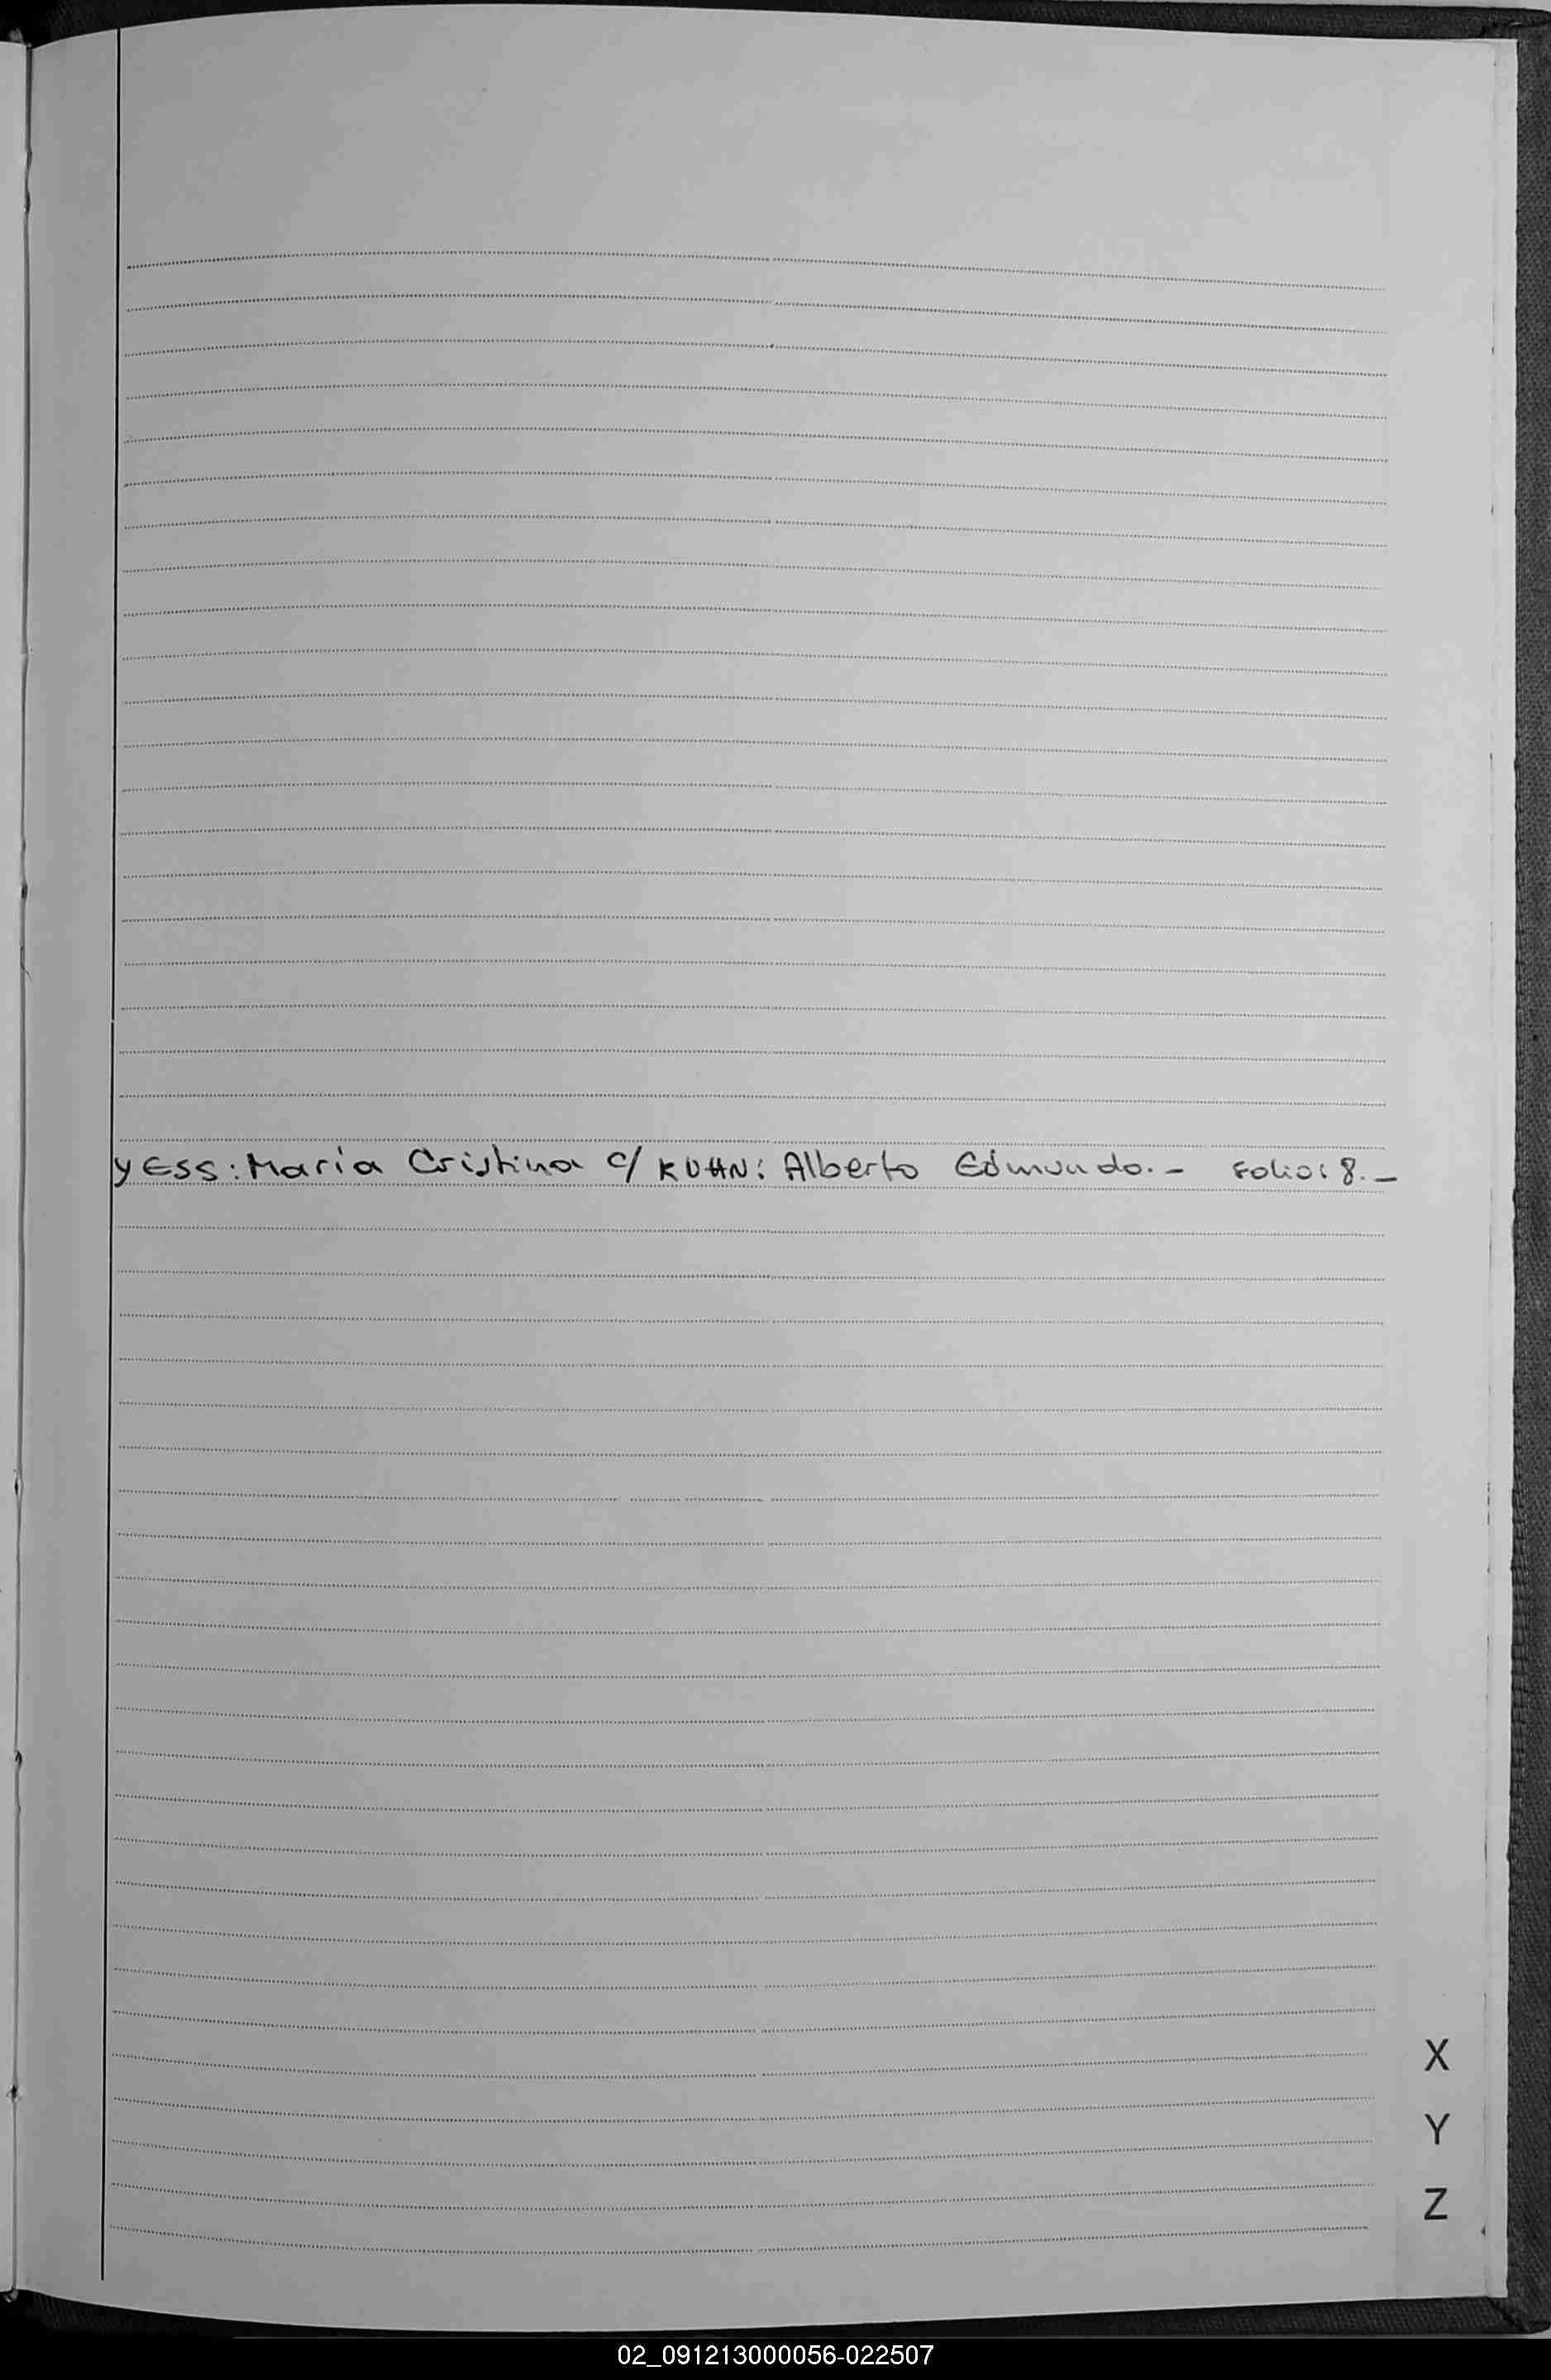 YESS: María Cristina c/ KUHN: Alberto Edmundo.- FOLIO: 8.-
X
Y
Z
02_091213000056-022507